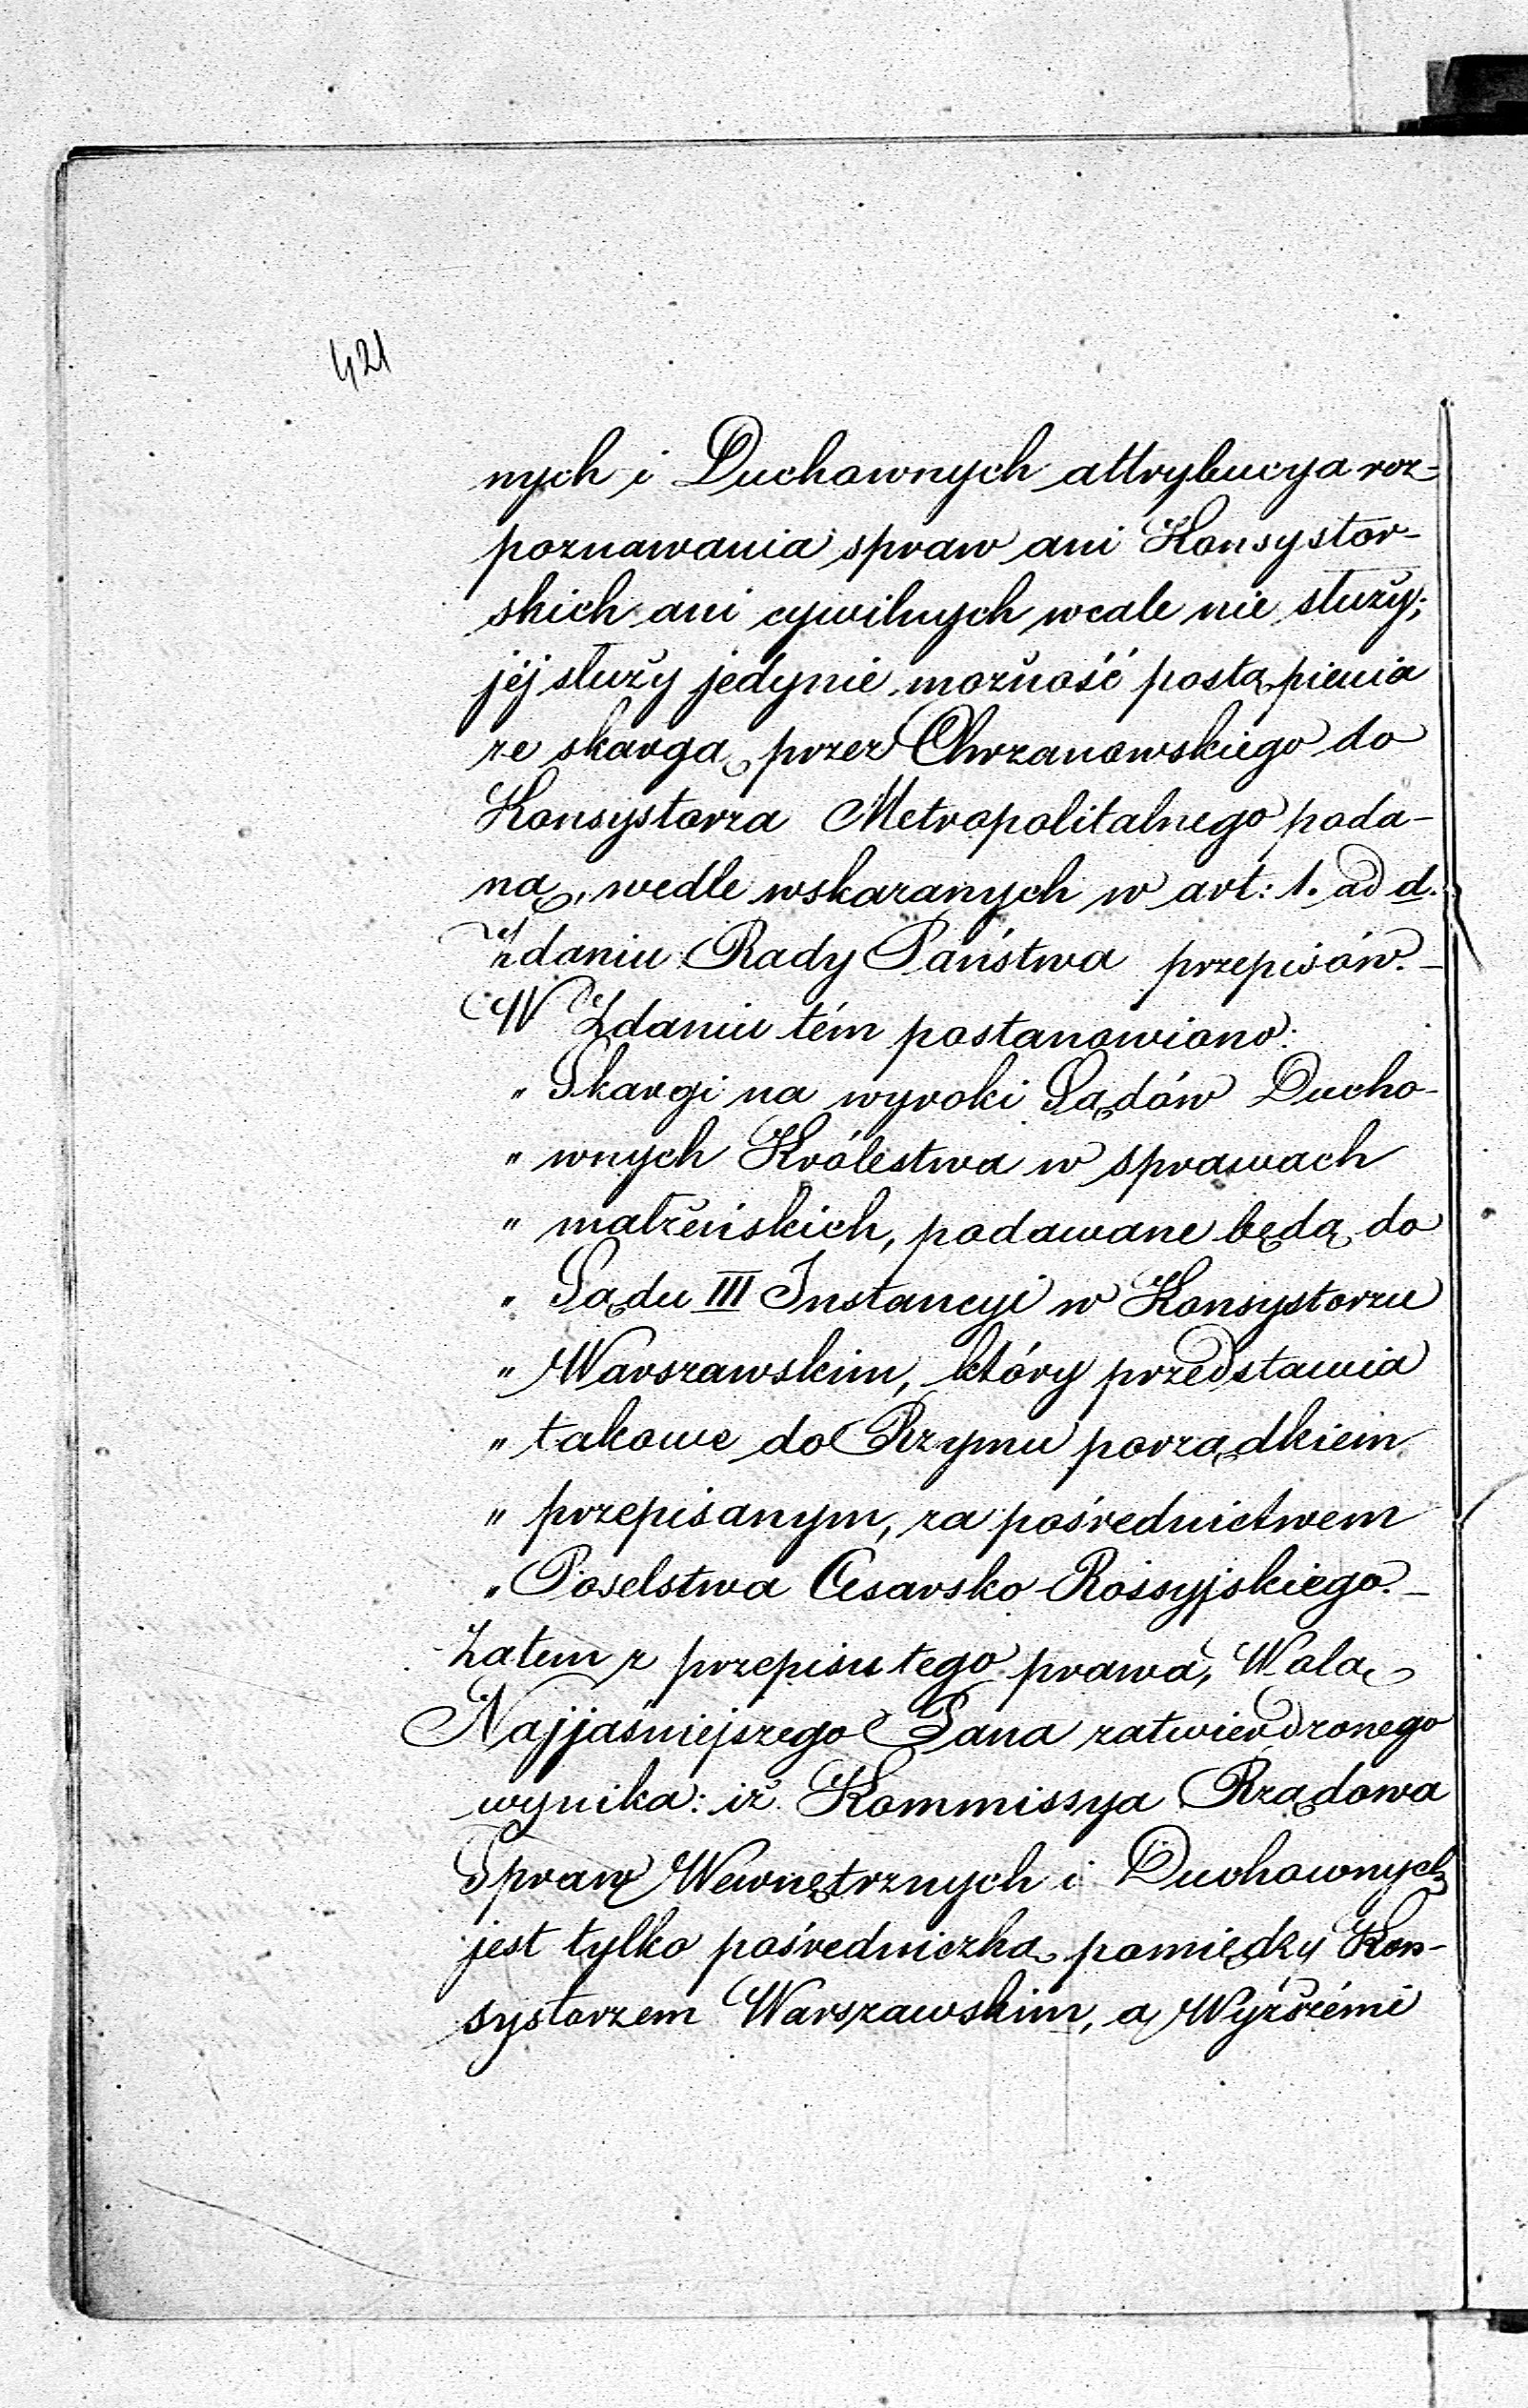 421
nych i Duchownych attrybucya roz-
poznawania spraw ani Konsystor-
skich ani cywilnych wcale nie służy;
jéj służy jedynie możność postąpienia
ze skargą przez Chrzanowskiego do
Konsystorza Metropolitalnego poda-
ną, wedle wskazanych w art: 1. ad d.
Zdaniu Rady Państwa przepisów. –
W Zdaniu tém postanowiono:
„ Skargi na wyroki Sądów Ducho-
„ wnych Królestwa w sprawach
„ małżeńskich, podawane będą do
„ Sądu III Instancyi w Konsystorzu
„ Warszawskim, który przedstawia
„ takowe do Rzymu porządkiem
„ przepisanym, za pośrednictwem
„ Poselstwa Cesarsko-Rossyjskiego. –
Zatem z przepisu tego prawa, Wolą
Najjaśniejszego Pana zatwierdzonego
wynika: iż Kommissya Rządowa
Spraw Wewnętrznych i Duchownych
jest tylko pośredniczką pomiędzy Kon-
systorzem Warszawskim, a Wyższémi